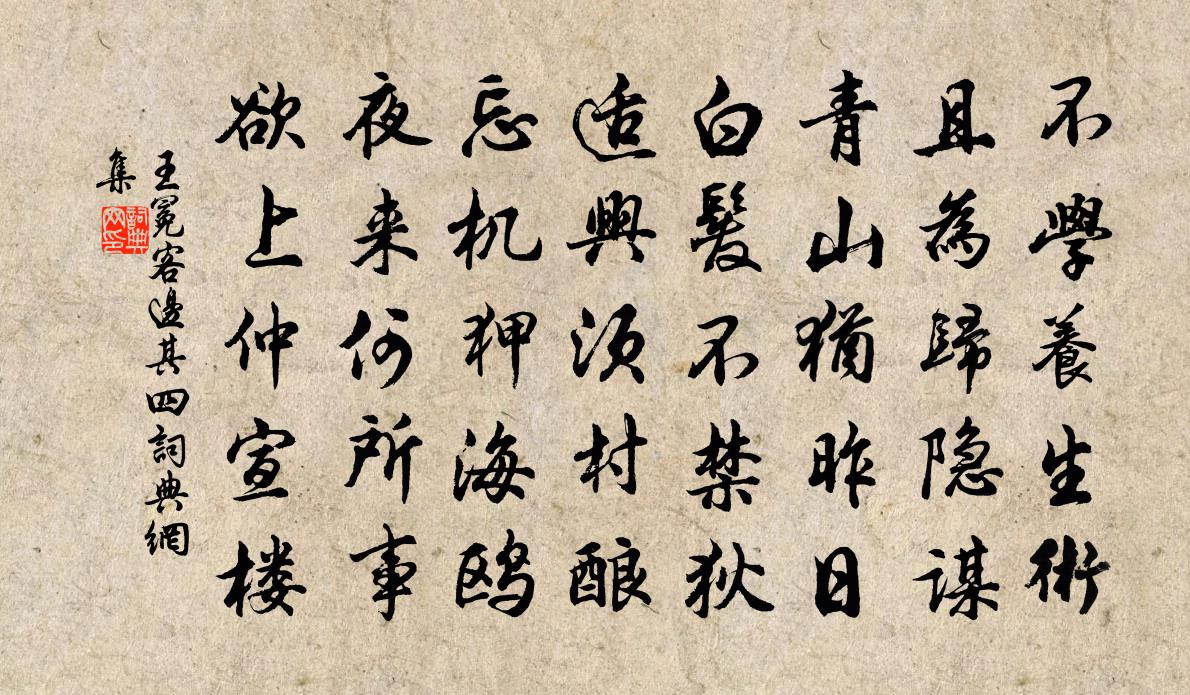 不學養生術
且為歸隐謀
青山猶昨日
白髮不禁狄
适興须村酿
忘机狎海鸥
夜来何所事
欲上仲宣楼
王冕客邊其四詞典網
集
詞典
网印